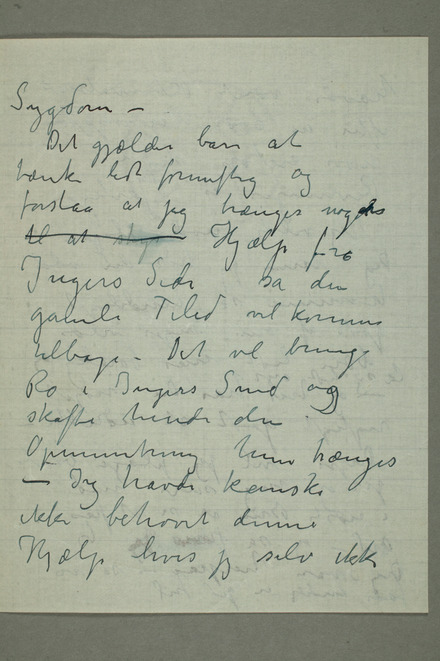 Sygdom –
Det gjælder bare at
tænke lidt fornuftig og
forstaa at jeg trænger nogen
til at Hjælp fra
Ingers Side sa den
gamle Tilid vil komme
tilbage – Det vil bringe
Ro i Ingers Sind og
skaffe hende den
Opmuntring hun trænges
– Jeg havde kanske
ikke behøvet denne
Hjælp hvis jeg selv ikke